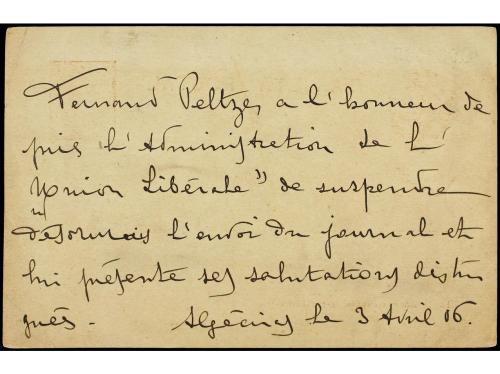 Fernand Peltzer a l'honneur de
prier l'Administration de l'
Union Libérale" de suspendre
désormais l'envoi du journal et
lui présente ses salutations distin
guées - Algéciras le 3 Avril 06.